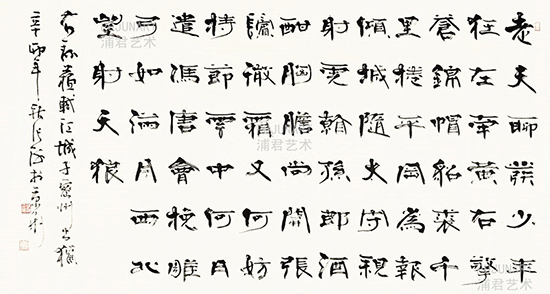 老夫聊發少年
狂左牽黃右擎
蒼錦帽貂裘千
捲平岡為報
傾城隨太守親
射虎孫郎酒
酣胸膽尚開張
鬢微霜又何妨
持節雲中何日
遣馮唐會挽雕
弓如滿月西北
望射天狼
右錄蘇軾江城子密州出獵
辛卯年
浦君艺术
浦君艺术
浦君艺术